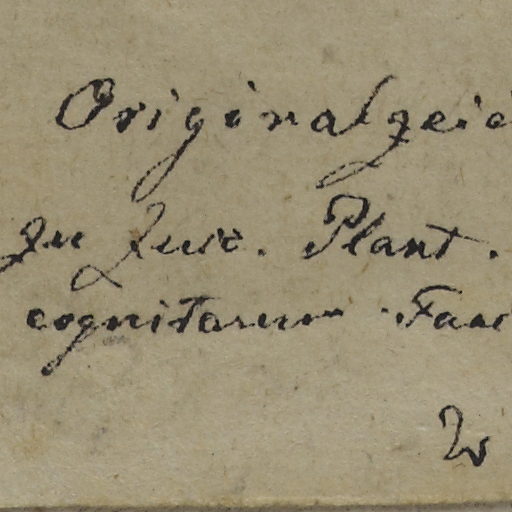 Originalzeic
zu Zucc. Plant.
cognitarum Fasc